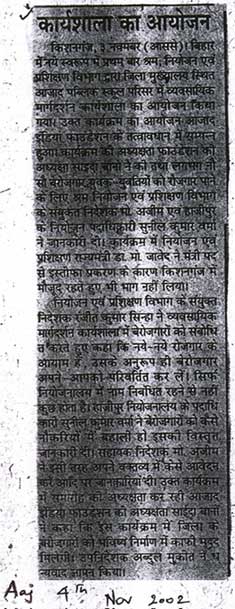 कार्यशाला का आयोजन
किशनगंज, ३ नवम्बर (आससे)। बिहार
में नये स्वरूप में प्रथम बार श्रम, नियोजन एवं
प्रशिक्षण विभाग द्वारा जिला मुख्यालय स्थित
आजाद पब्लिक स्कूल परिसर में व्यवसायिक
मार्गदर्शन कार्यशाला का आयोजन किया
गया। उक्त कार्यक्रम का आयोजन आजाद
इंडिया फाउंडेशन के तत्वावधान में सम्पन्न
हुआ। कार्यक्रम की अध्यक्षता फाउंडेशन की
अध्यक्षा साइदा बानो ने की तथा लगभग नौ
सौ बेरोजगार युवक-युवतियों को रोजगार पाने
के लिए श्रम नियोजन एवं प्रशिक्षण विभाग
के संयुक्त निदेशक मो. अजीम एवं हाजीपुर
के नियोजन पदाधिकारी सुनील कुमार वर्मा
ने जानकारी दी। कार्यक्रम में नियोजन एवं
प्रशिक्षण राज्यमंत्री डा. मो. जावेद ने मंत्री पद
से इस्तीफा प्रकरण के कारण किशनगंज में
मौजूद रहते हुए भी भाग नहीं लिया।
नियोजन एवं प्रशिक्षण विभाग के संयुक्त
निदेशक रंजीत कुमार सिन्हा ने व्यवसायिक
मार्गदर्शन कार्यशाला में बेरोजगारों को संबोधि
त करते हुए कहा कि नये-नये रोजगार के
आयाम हैं, उसके अनुरूप ही बेरोजगार
अपने आपको परिवर्तित कर लें। सिर्फ
नियोजनालय में नाम निबंधित रहने से नहीं
कुछ होता है। हाजीपुर नियोजनालय के पदाधि
कारी सुनील कुमार वर्मा ने बेरोजगारों को कैसे
नौकरियों में बहाली हो इसकी विस्तृत
जानकारी दी। सहायक निदेशक मो. अजीम
ने इसी तरह अपने वक्तव्य में कैसे आवेदन
करें आदि पर जानकारियां दी। उक्त कार्यक्रम
में समारोह की अध्यक्षता कर रही आजाद
इंडिया फाउंडेशन की अध्यक्षता साइदा बानो
ने कहा कि इस कार्यक्रम में जिला के
बेरोजगारों को भविष्य निर्माण में काफी मदद
मिलेगी। उपनिदेशक अब्दुल मुकीत ने ध
न्यवाद ज्ञापन किया।
Aaj 4th Nov 2002